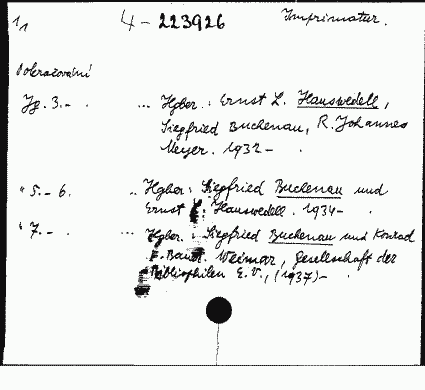 11 4-223926 Imprimatur.
Pokračování
Jg. 3.- . ... Hgber. : Ernst L. Hauswedell,
Siegfried Buchenau, R. Johannes
Meyer. 1932- .
" 5.- 6. .. Hgber : Siegfried Buchenau und
Ernst L. Hauswedell. 1934- .
" 7.- . ... Hgber. : Siegfried Buchenau und Konrad
F. Bauer. Weimar, Gesellschaft der
Bibliophilen E.V., (1937)- .